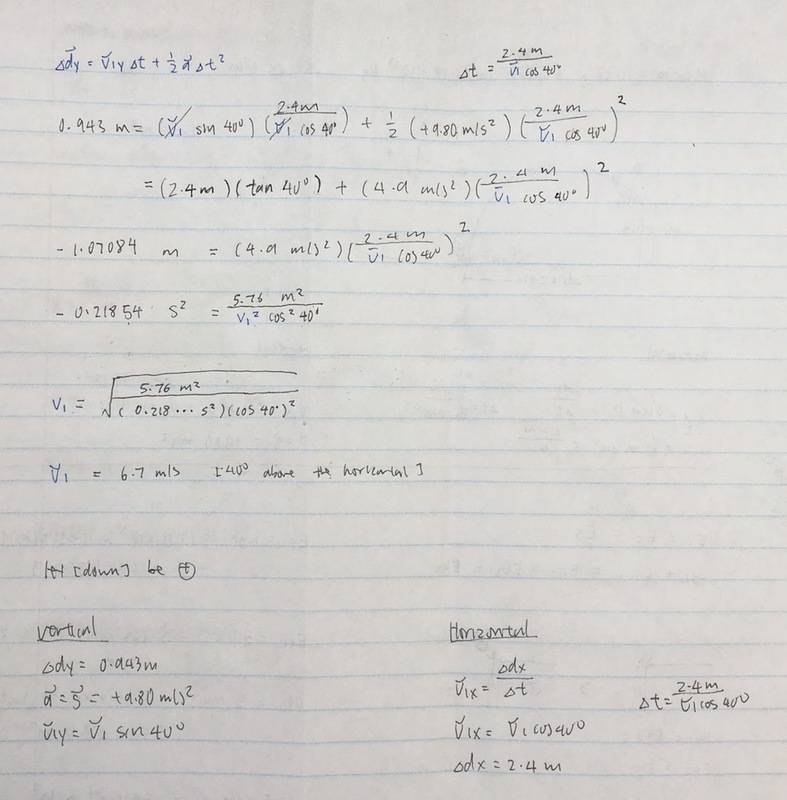 Δd⃗y = v⃗1y Δt + 1/2 a⃗ Δt²
Δt = 2.4 m / v⃗1 cos 40°
0.943 m = (v⃗1 sin 40°) (2.4m / v⃗1 cos 40°) + 1/2 (+9.80 m/s²) (2.4 m / v⃗1 cos 40°)²
= (2.4m) (tan 40°) + (4.9 m/s²) (2.4 m / v⃗1 cos 40°)²
- 1.07084 m = (4.9 m/s²) (2.4 m / v⃗1 cos 40°)²
- 0.21854 s² = 5.76 m² / v1² cos² 40°
v1 = √(5.76 m² / (0.218 ··· s²)(cos 40°)²)
v⃗1 = 6.7 m/s [40° above the horizontal]
let [down] be ⊕
Vertical
Δdy = 0.943m
a⃗ = g⃗ = +9.80 m/s²
v⃗1y = v⃗1 sin 40°
Horizontal
v⃗1x = Δdx / Δt
Δt = 2.4 m / v⃗1 cos 40°
v⃗1x = v⃗1 cos 40°
Δdx = 2.4 m